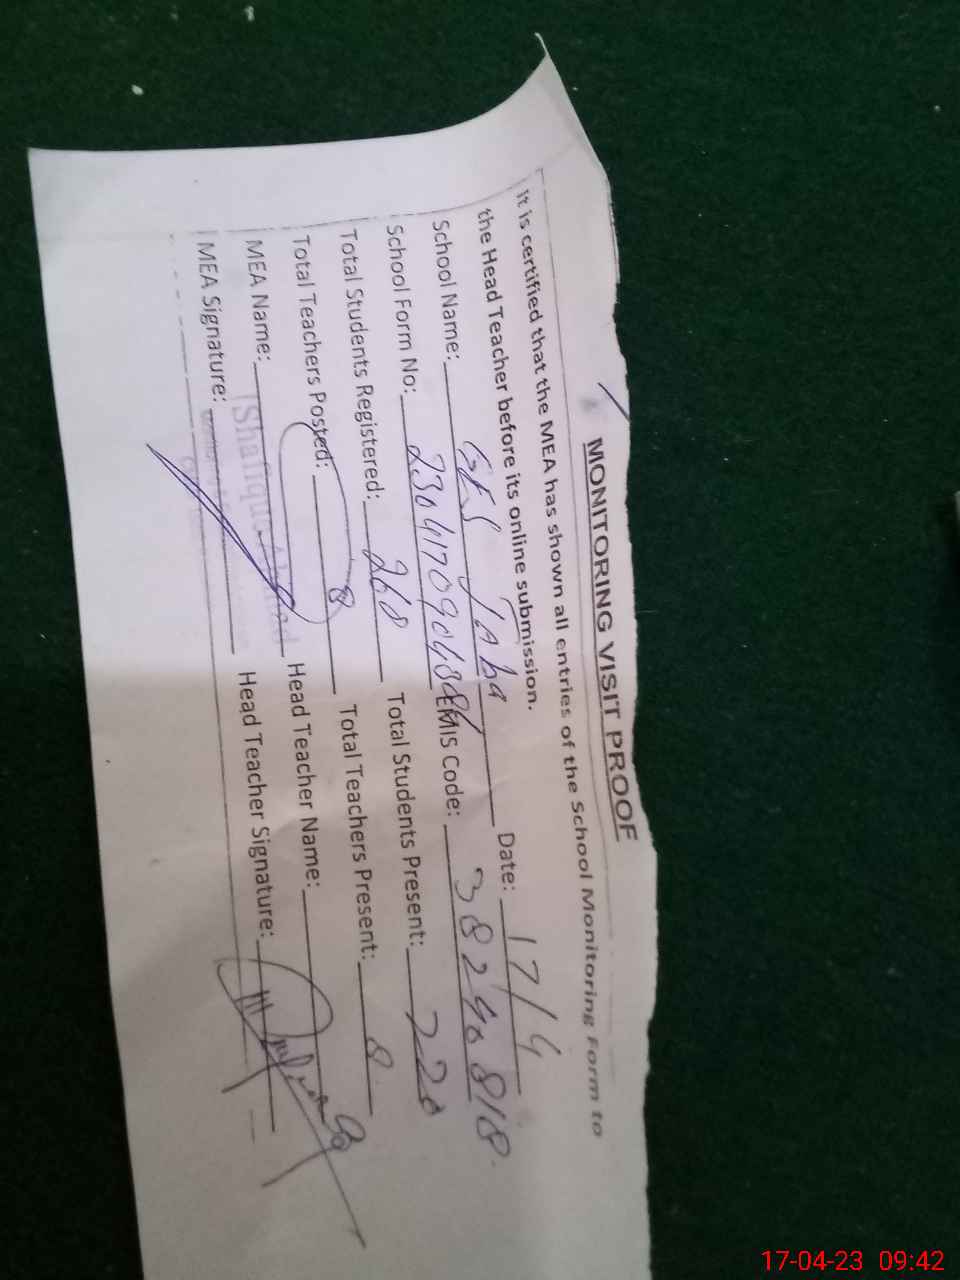 MONITORING VISIT PROOF
It is certified that the MEA has shown all entries of the School Monitoring Form to
the Head Teacher before its online submission.
School Name: GES Jaba Date: 17/4
School Form No: EMIS Code: 38240818
Total Students Registered: 268 Total Students Present: 220
Total Teachers Posted: 8 Total Teachers Present: 8
MEA Name: Shafique Ahmad Head Teacher Name:
MEA Signature: Head Teacher Signature:
17-04-23 09:42